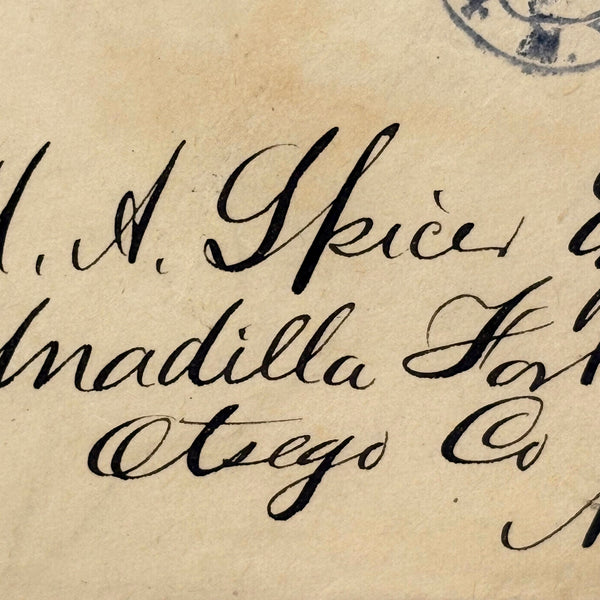 A. Spicer
Unadilla
Otsego Co